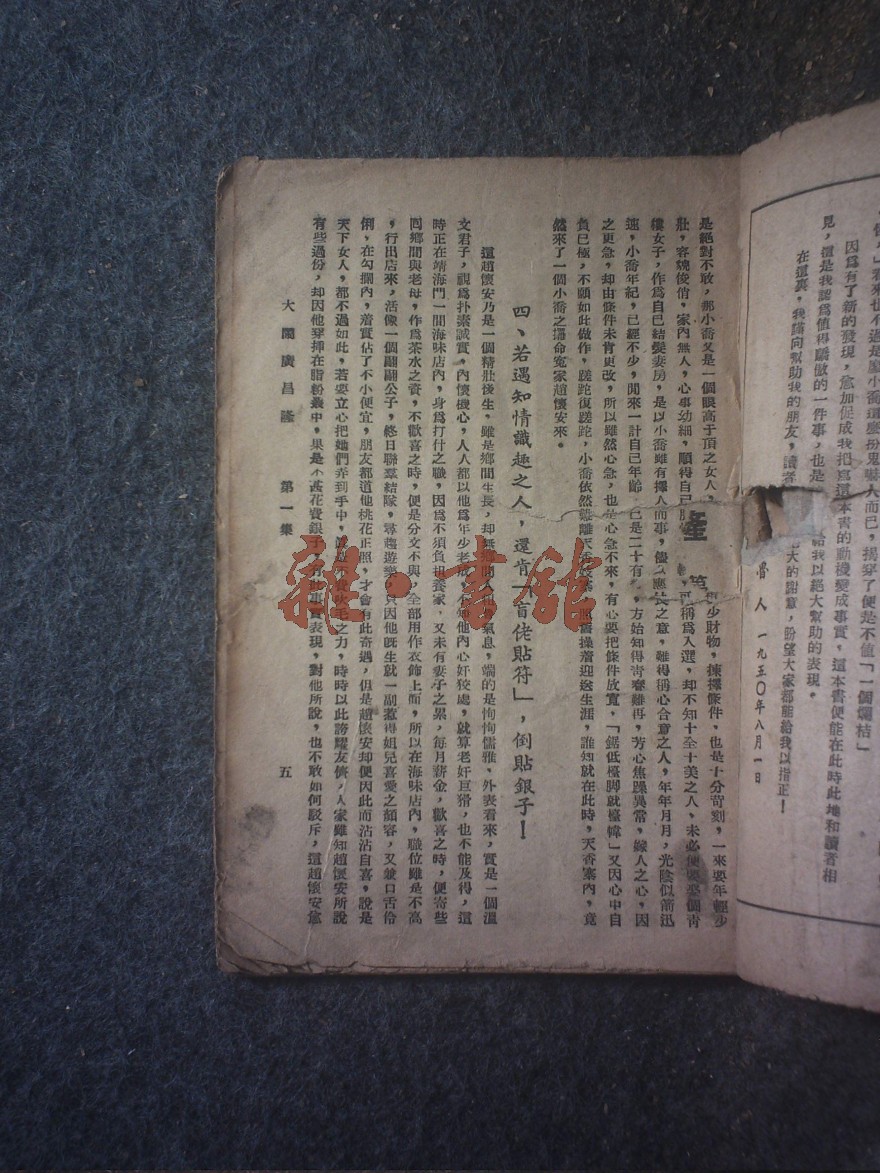 「個人」看來也不過是廖小喬這麼扮鬼嚇人而已,揭穿了便是不値「一個爛桔」
因爲有了新的發現,愈加促成我把寫這本書的動機變成事實,這本書便能在此時此地和讀者相
見,這是我認爲値得驕傲的一件事,也是 給我以絕大幫助的表現。
在這裏,我謹向幫助我的朋友,讀者 大的謝意,盼望大家都能給我以指正!
人 一九五〇年八月一日
是絕對不敢,那小喬又是一個眼高于頂之女人, 少財物,揀擇條件,也是十分苛刻,一來要年輕少
壯,容貌俊俏,家內無人,心事幼細,順得自己 稱爲人選,却不知十全十美之人,未必便要娶個靑
樓女子,作爲自己結髮妻房,是以小喬雖有擇人而事,儘 應長之意,難得稱心合意之人,年年月月,光陰似箭迅
速,小喬年紀,已經不少,閒來一計自己年齡,已是二十有 方始知得靑春難再,芳心焦躁異常,嫁人之心,因
之更急,却由條件未肯更改,所以雖然心急,也是心急不來,有心要把條件放寬,「鋸低檯脚就檯幃」又因心中自
負已極,不願如此做作,蹉跎復蹉跎,小喬依然難離天香 照舊操着迎送生涯,誰知就在此時,天香寨內,竟
然來了一個小喬之還命寃家趙懷安來。
四、若遇知情識趣之人,還肯「盲佬貼符」,倒貼銀子!
這趙懷安乃是一個精壯後生,雖是鄉間生長,却無鄉間人 氣息,端的是恂恂儒雅,外表看來,實是一個溫
文君子,視爲朴素誠實,內懷機心,人人都以他爲年少老成,不知他內心奸狡處,就算老奸巨猾,也不能及得,這
時正在靖海門一間海味店內,身爲打什之職,因爲不須負担養家,又未有妻子之累,每月薪金,歡喜之時,便寄些
囘鄉間與老母,作爲茶水之資,不歡喜之時,便是分文不與,全部用作衣飾上面,所以在海味店內,職位雖是不高
,行出店來,活像一個翩翩公子,終日聯羣結隊,尋趨遊樂,只因他旣生就一副惹得姐兒喜愛之顏容,又兼口舌伶
俐,在勾攔內,着實佔了不小便宜,朋友都道他桃花正照,才會有此奇遇,但是趙懷安却便因此而沾沾自喜,說是
天下女人,都不過如此,若要立心把她們弄到手中, 不費吹毛之力,時時以此誇耀友儕,人家雖知趙懷安所說
有些過份,却因他穿揷在脂粉叢中,果是不甚花費銀子,有此事實表現,對他所說,也不敢如何駁斥,這趙懷安愈
大鬧廣昌隆 第一集 五
產
第
雜·書館